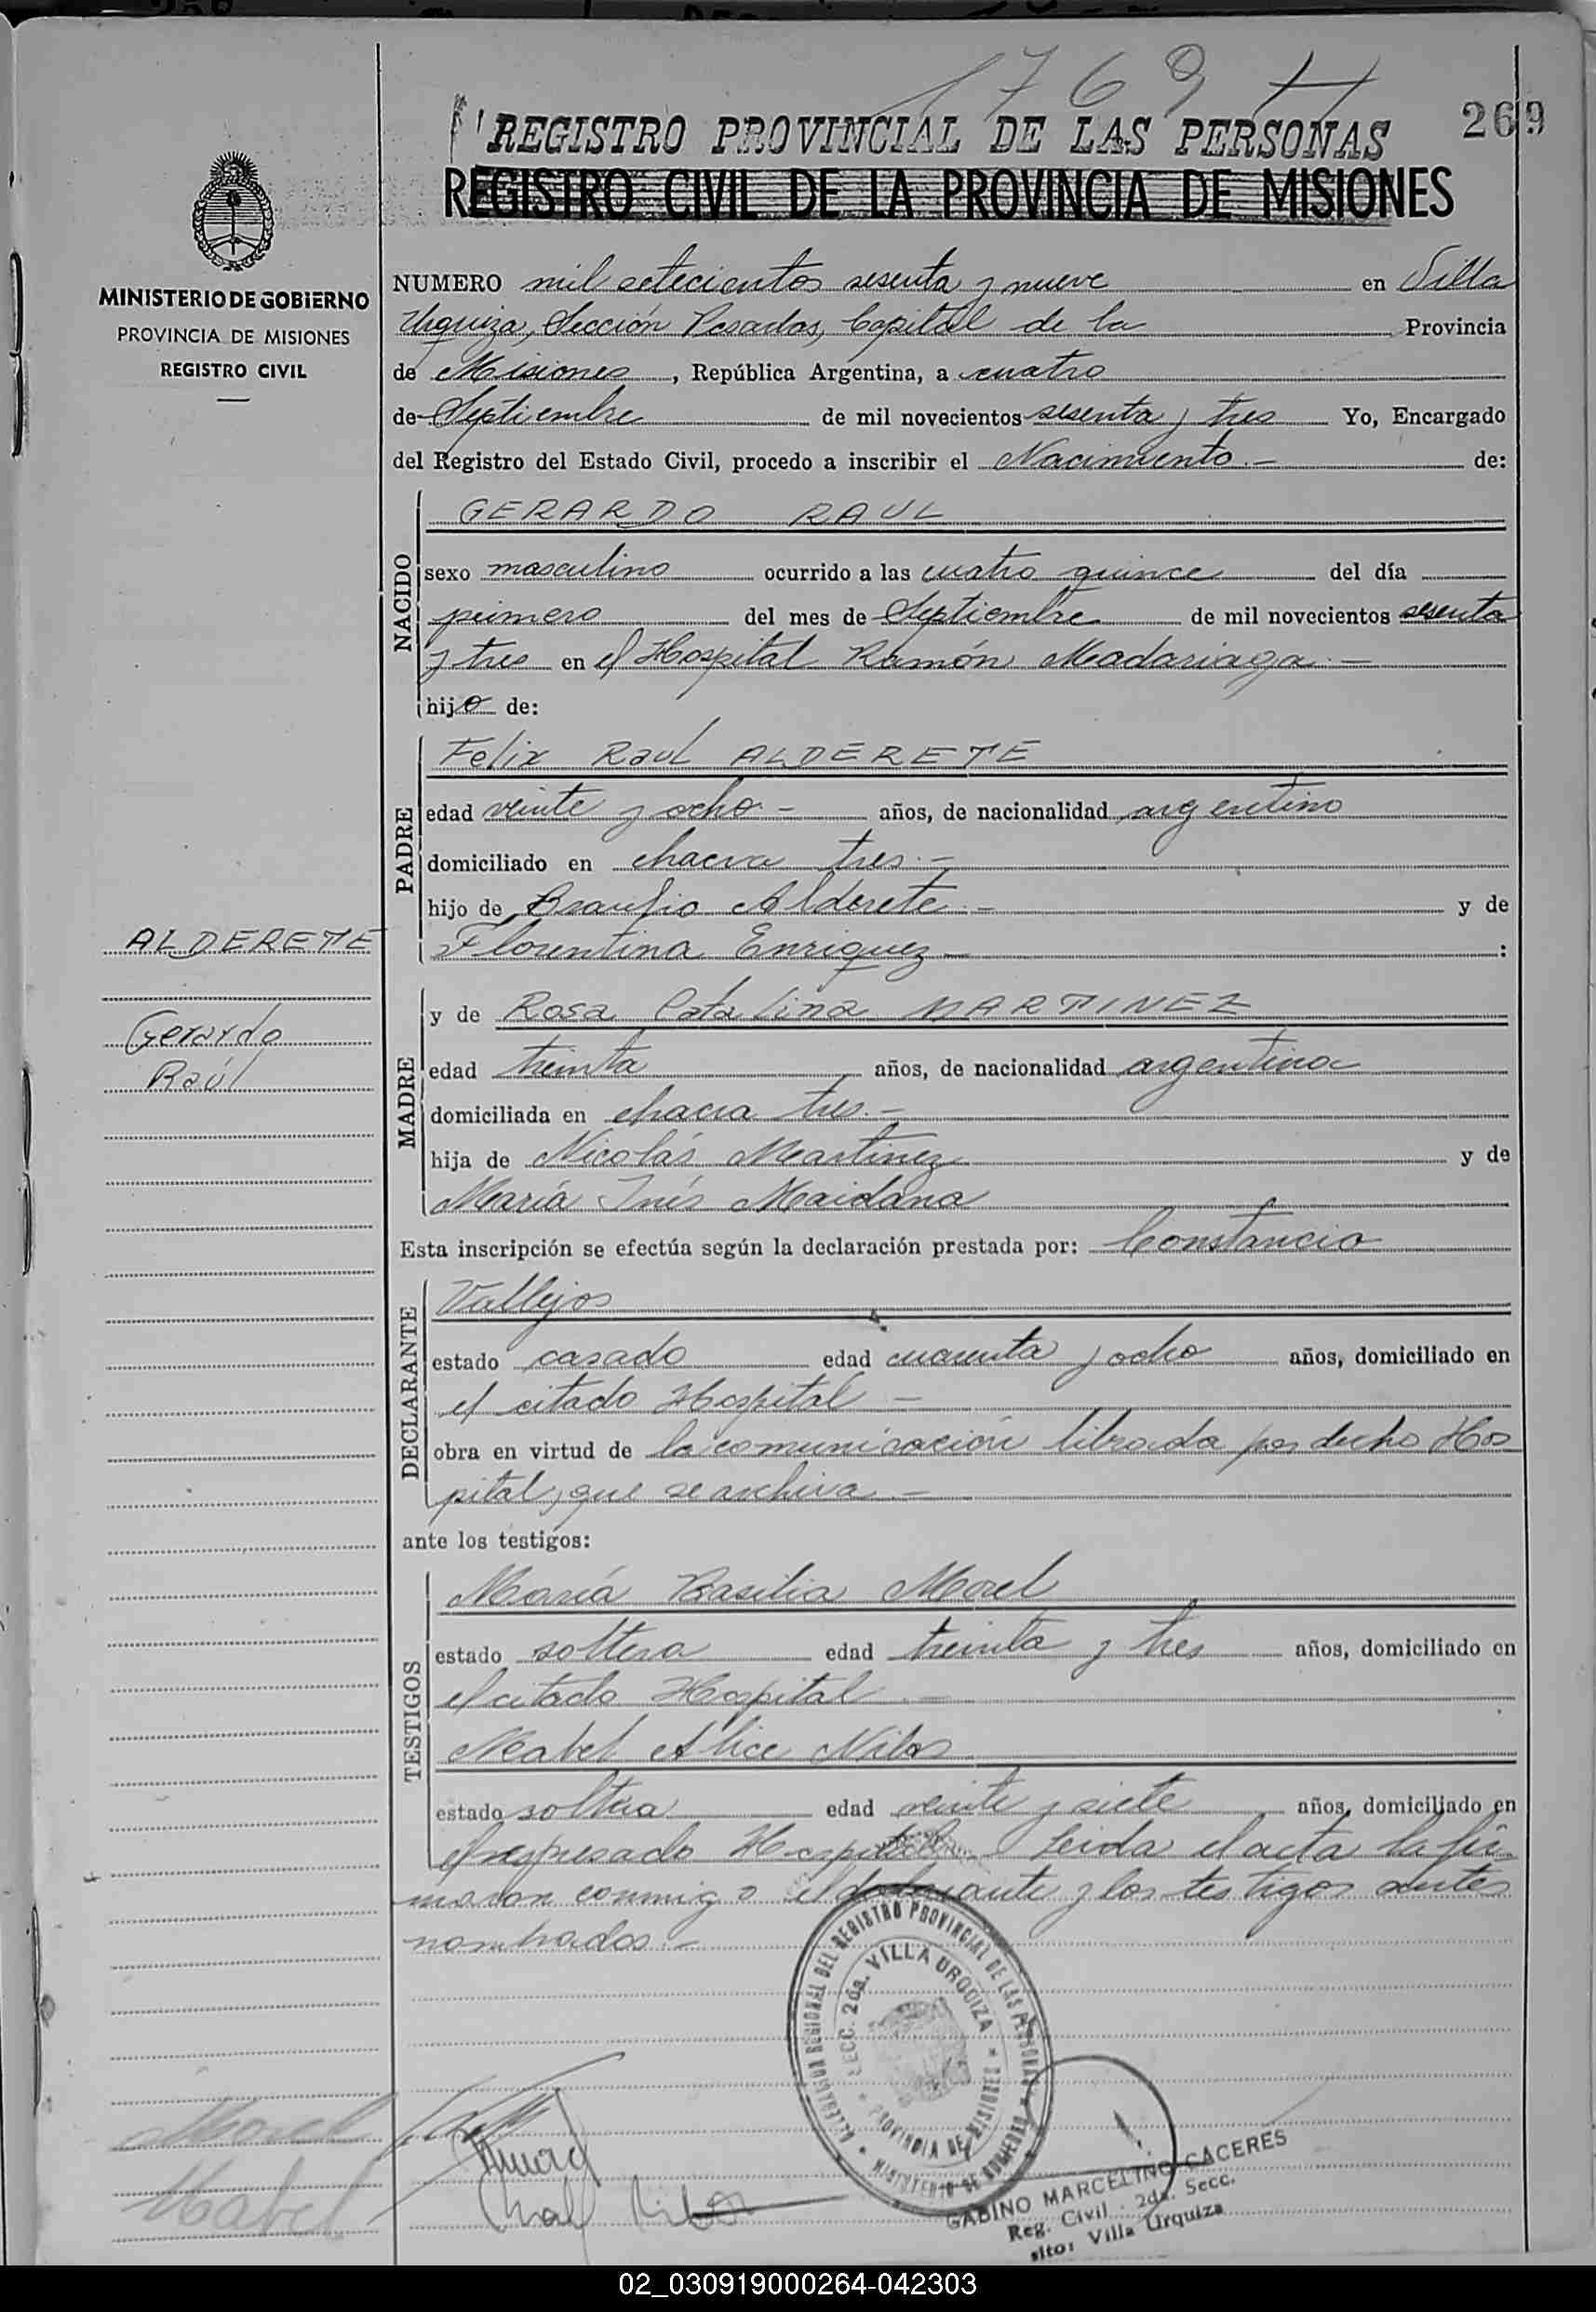 1769
269
REGISTRO PROVINCIAL DE LAS PERSONAS
REGISTRO CIVIL DE LA PROVINCIA DE MISIONES
MINISTERIO DE GOBIERNO
PROVINCIA DE MISIONES
REGISTRO CIVIL
NUMERO mil setecientos sesenta y nueve en Villa
Urquiza, Sección Posadas, Capital de la Provincia
de Misiones, República Argentina, a cuatro
de Septiembre de mil novecientos sesenta y tres Yo, Encargado
del Registro del Estado Civil, procedo a inscribir el Nacimiento.- de:
NACIDO
GERARDO RAUL
sexo masculino ocurrido a las cuatro quince del día
primero del mes de Septiembre de mil novecientos sesenta
y tres en el Hospital Ramón Madariaga.-
hijo de:
PADRE
Felix Raul ALDERETE
edad veinte y ocho.- años, de nacionalidad argentino
domiciliado en chacra tres.-
hijo de Braulio Alderete.- y de
Florentina Enriquez- :
ALDERETE
Gerardo
Raúl
MADRE
y de Rosa Catalina MARTINEZ
edad treinta años, de nacionalidad argentina
domiciliada en chacra tres.-
hija de Nicolás Martinez y de
María Inés Maidana
Esta inscripción se efectúa según la declaración prestada por: Constancio
DECLARANTE
Vallejos
estado casado edad cuarenta y ocho años, domiciliado en
el citado Hospital -
obra en virtud de la comunicación librada por dicho Hos
pital, que se archiva.-
ante los testigos:
TESTIGOS
María Basilia Morel
estado soltera edad treinta y tres años, domiciliado en
el citado Hospital.-
Mabel Alice
estado soltera edad veinte y siete años, domiciliado en
el expresado Hospital.- Leida el acta la fir-
maron conmigo el declarante y los testigos antes
nombrados.-
DELEGACION REGIONAL DEL REGISTRO PROVINCIAL DE LAS PERSONAS
SECC. 2da. VILLA URQUIZA
PROVINCIA DE MISIONES
MINISTERIO DE GOBIERNO
Morel
Mabel
GABINO MARCELINO CACERES
Reg. Civil - 2da. Secc.
sito: Villa Urquiza
02_030919000264-042303